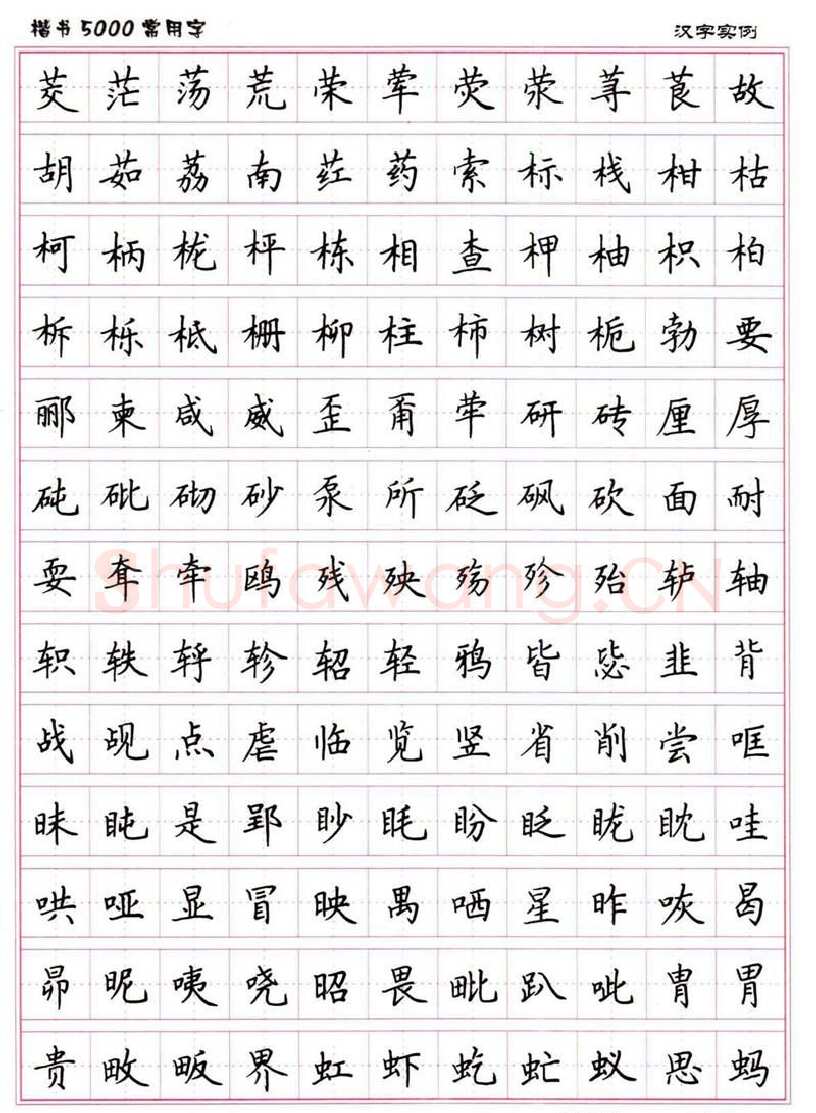 楷书5000常用字 汉字实例
茭茫荡荒荣荤荧荥荨茛故
胡茹荔南荭药索标栈柑枯
柯柄栊枰栋相查柙柚枳柏
柝栎柢栅柳柱柿树栀勃要
郦柬咸威歪甭荦研砖厘厚
砘砒砌砂泵所砭砜砍面耐
耍耷牵鸥残殃殇殄殆轳轴
轵轶轷轸轺轻鸦皆毖韭背
战觇点虐临览竖省削尝哐
昧盹是郢眇眊盼眨眬眈哇
哄哑显冒映禺哂星昨咴曷
昴昵咦哓昭畏毗趴呲胄胃
贵畋畈界虹虾虼虻蚁思蚂
Shufawang.CN